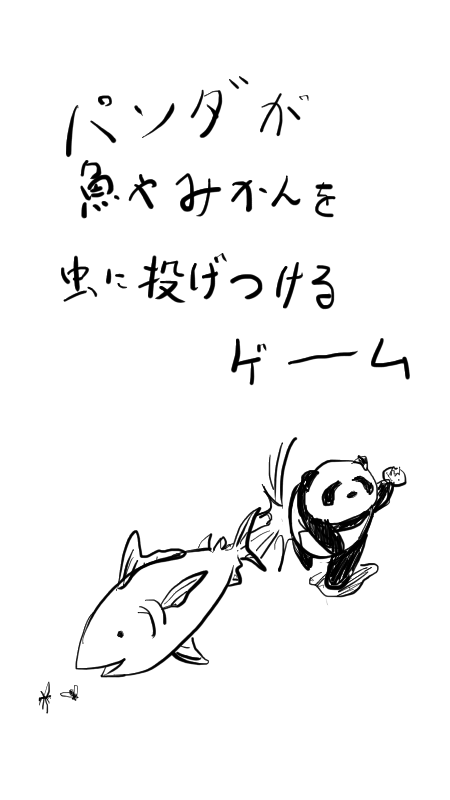 パンダが
魚やみかんを
虫に投げつける
ゲーム